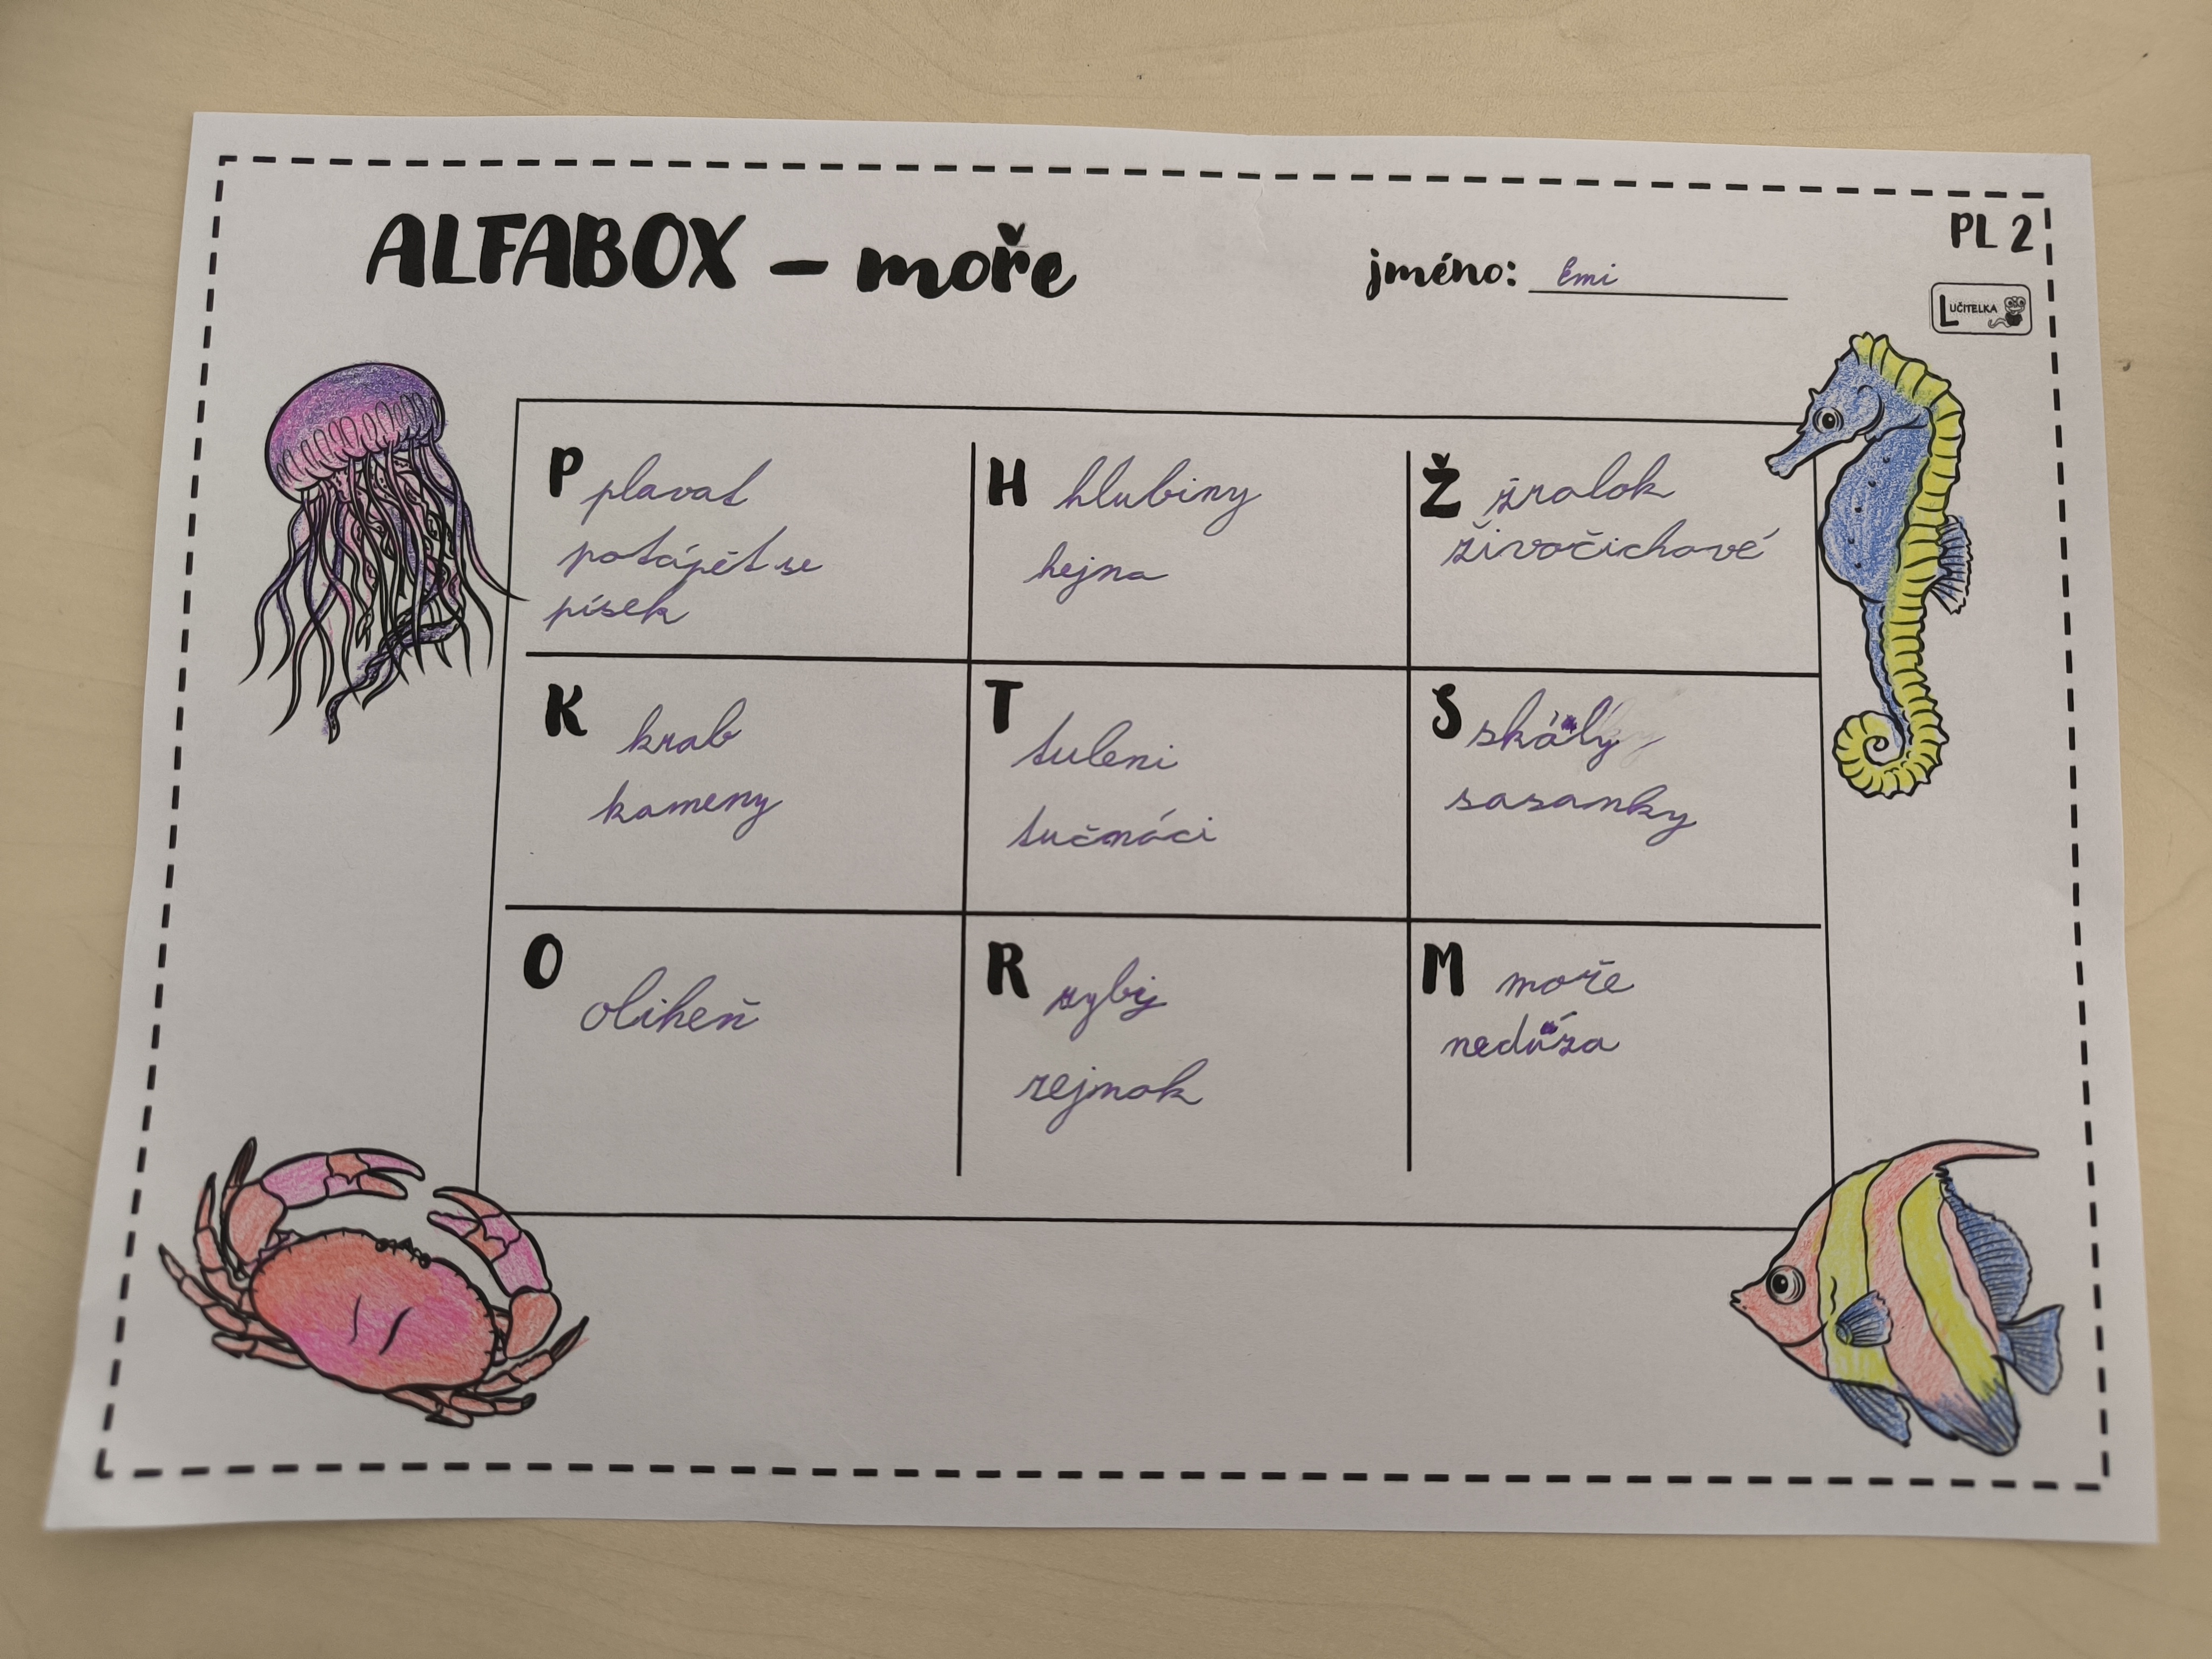 ALFABOX – moře
jméno: Emi
PL 2
LUČITELKA
P plavat
potápět se
písek
H hlubiny
hejna
Ž žralok
živočichové
K krab
kameny
T tuleni
tučnáci
S skály
sasanky
O oliheň
R ryby
rejnok
M moře
nedúza